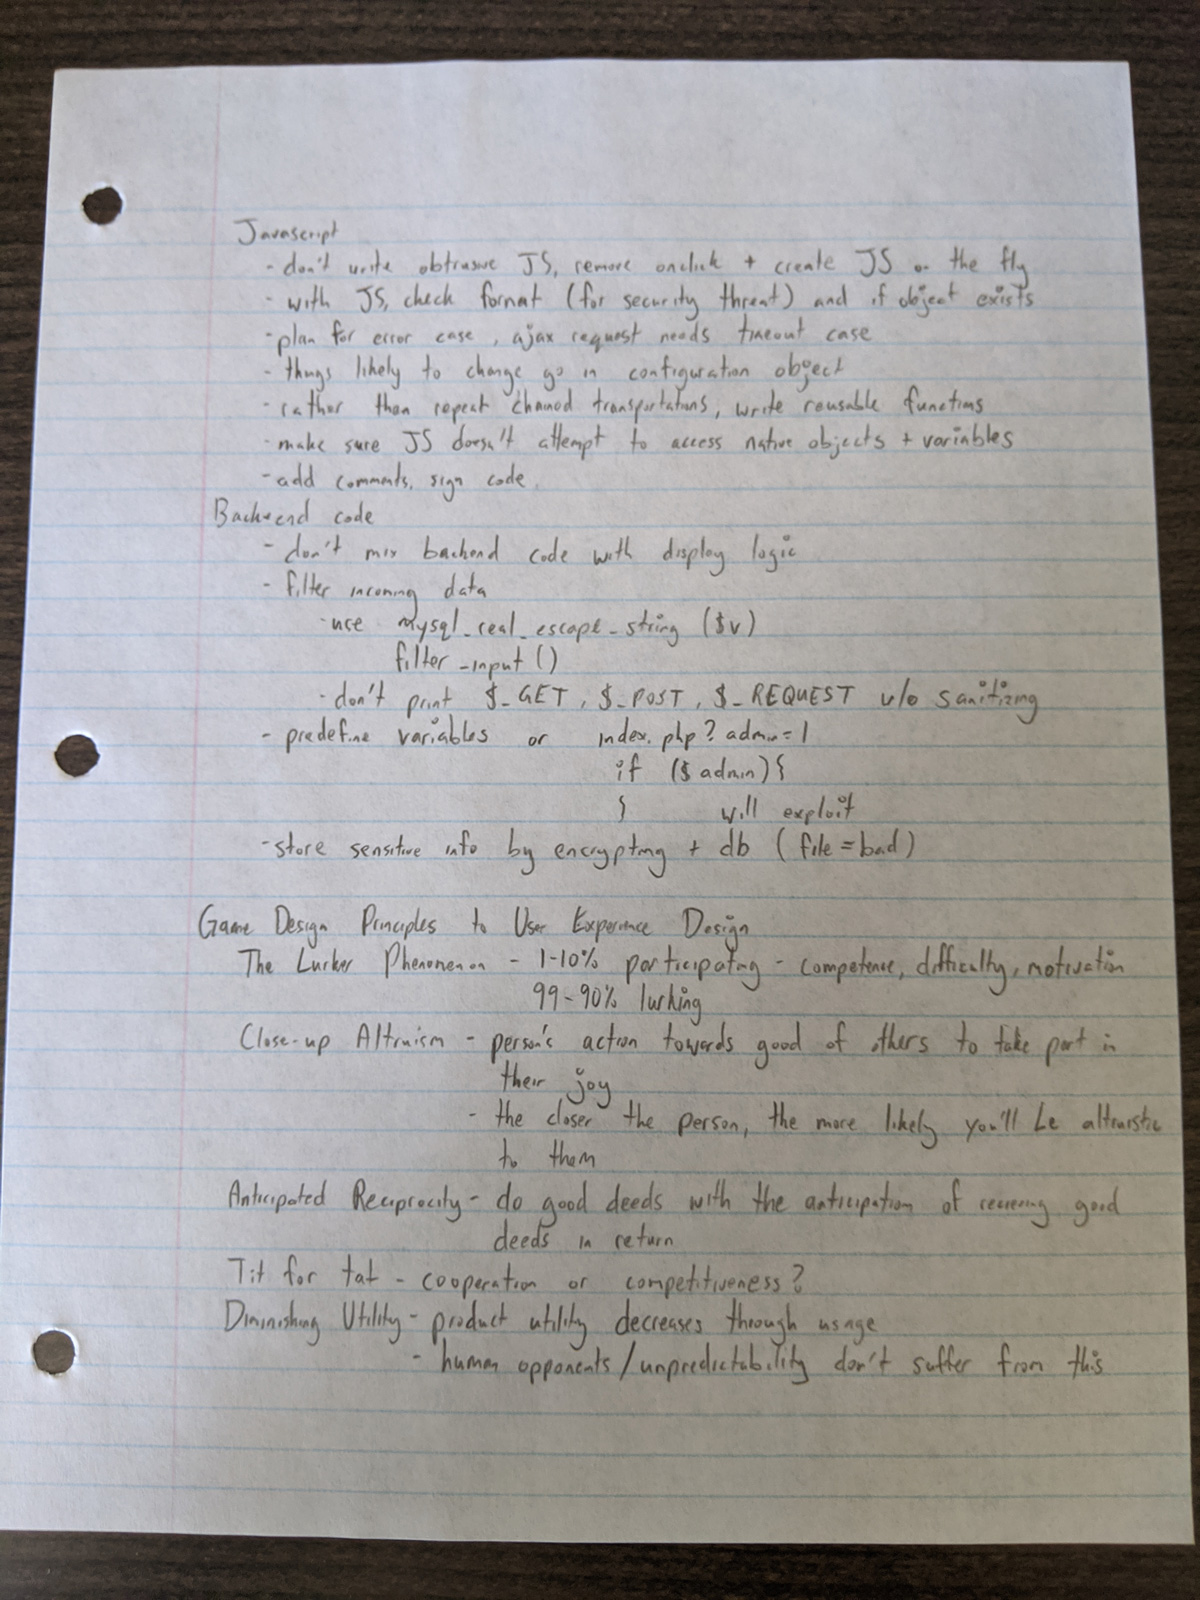 Javascript
- don't write obtrusive JS, remove onclick + create JS on the fly
- with JS, check format (for security threat) and if object exists
- plan for error case, ajax request needs timeout case
- things likely to change go in configuration object
- rather than repeat chained transportations, write reusable functions
- make sure JS doesn't attempt to access native objects + variables
- add comments, sign code.
Backend code
- don't mix backend code with display logic
- filter incoming data
- use mysql_real_escape_string ($v)
filter_input ()
- don't print $_GET, $_POST, $_REQUEST w/o sanitizing
- predefine variables or index.php?admin=1
if ($admin){
} will exploit
- store sensitive info by encrypting + db (file = bad)
Game Design Principles to User Experience Design
The Lurker Phenomenon - 1-10% participating - competence, difficulty, motivation
99-90% lurking
Close-up Altruism - person's action towards good of others to take part in
their joy
- the closer the person, the more likely you'll be altruistic
to them
Anticipated Reciprocity - do good deeds with the anticipation of receiving good
deeds in return
Tit for tat - cooperation or competitiveness?
Diminishing Utility - product utility decreases through usage
- human opponents/unpredictability don't suffer from this